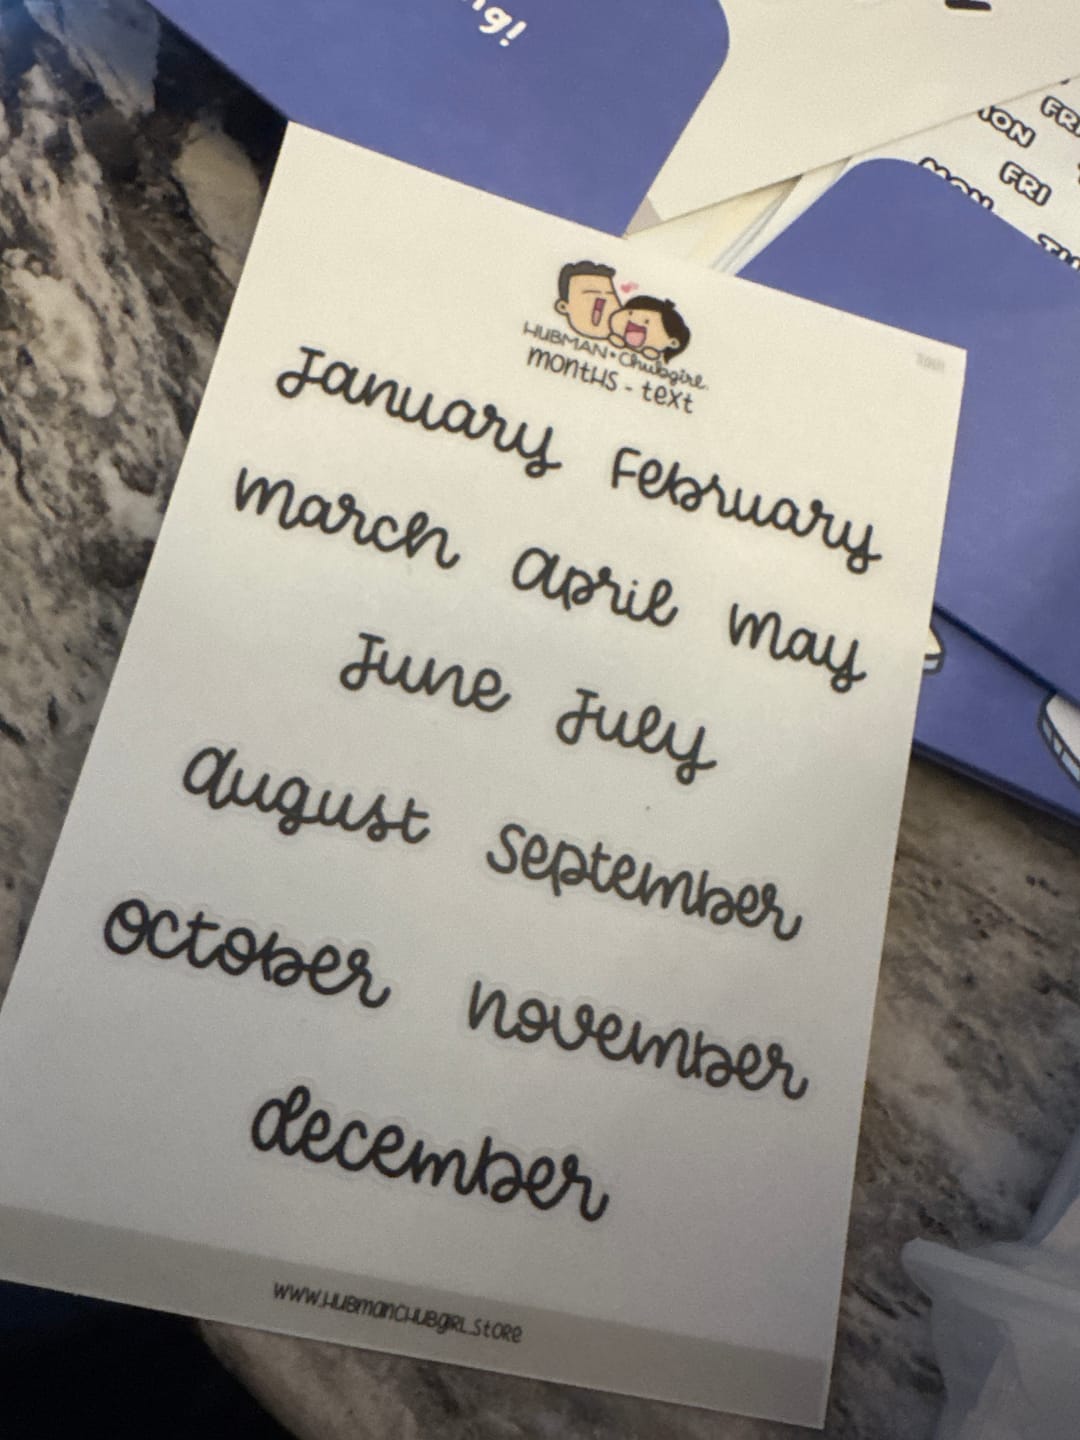 ng!
MON
FRI
FRI
MON
HUBMAN•Chubgirl.
months - text
January February
march april may
June July
august September
october november
december
www.HubmanCHubgirl.store